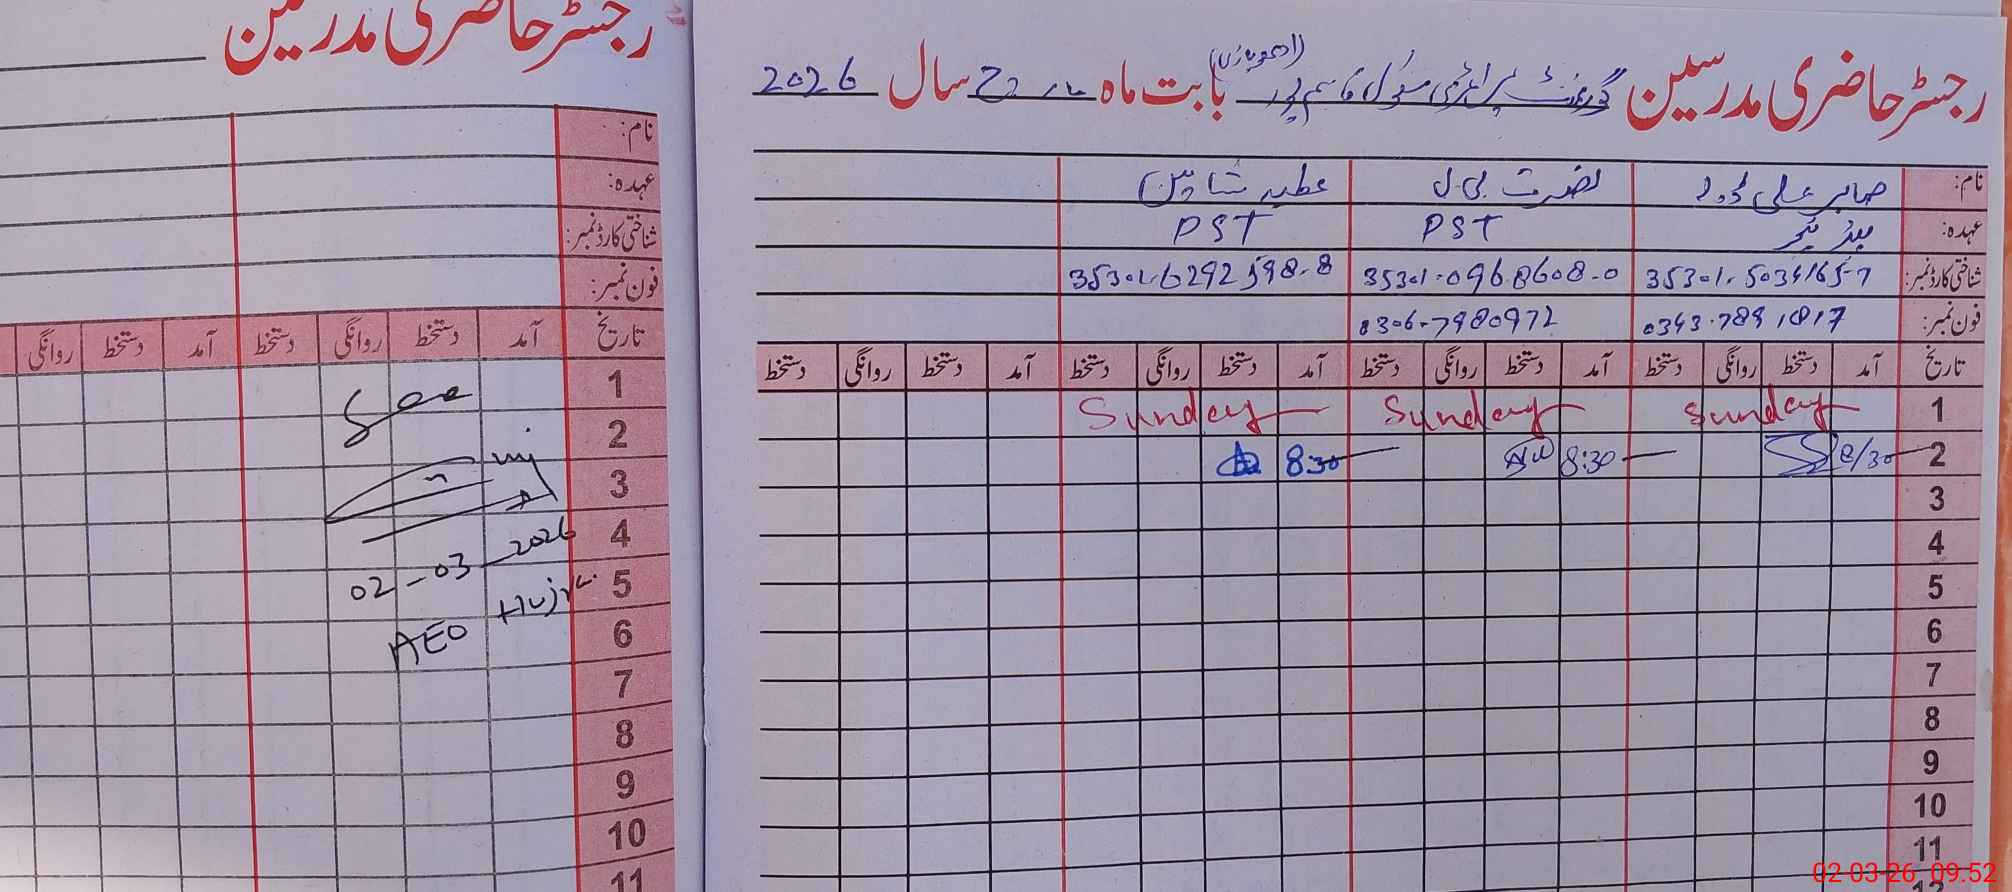 رجسٹر حاضری مدرسین
نام:
عہدہ:
شناختی کارڈ نمبر:
فون نمبر:
تاریخ آمد دستخط روانگی دستخط آمد دستخط روانگی
1
2
3
4
5
6
7
8
9
10
11
See
02-03-2026
AEO Hujra
رجسٹر حاضری مدرسین گورنمنٹ پرائمری سکول قاسم پور بابت ماہ مارچ سال 2026
نام: صابر علی نصرت بی بی عطیہ شاہین
عہدہ: ہیڈ ٹیچر PST PST
شناختی کارڈ نمبر: 35301-5034165-7 35301-0968608-0 35301-6292598-8
فون نمبر: 0343-7891817 0306-7980972
تاریخ آمد دستخط روانگی دستخط آمد دستخط روانگی دستخط آمد دستخط روانگی دستخط آمد دستخط روانگی دستخط
1 Sunday Sunday Sunday
2 8/30 8:30 8:30
3
4
5
6
7
8
9
10
11
12
02-03-26 09:52